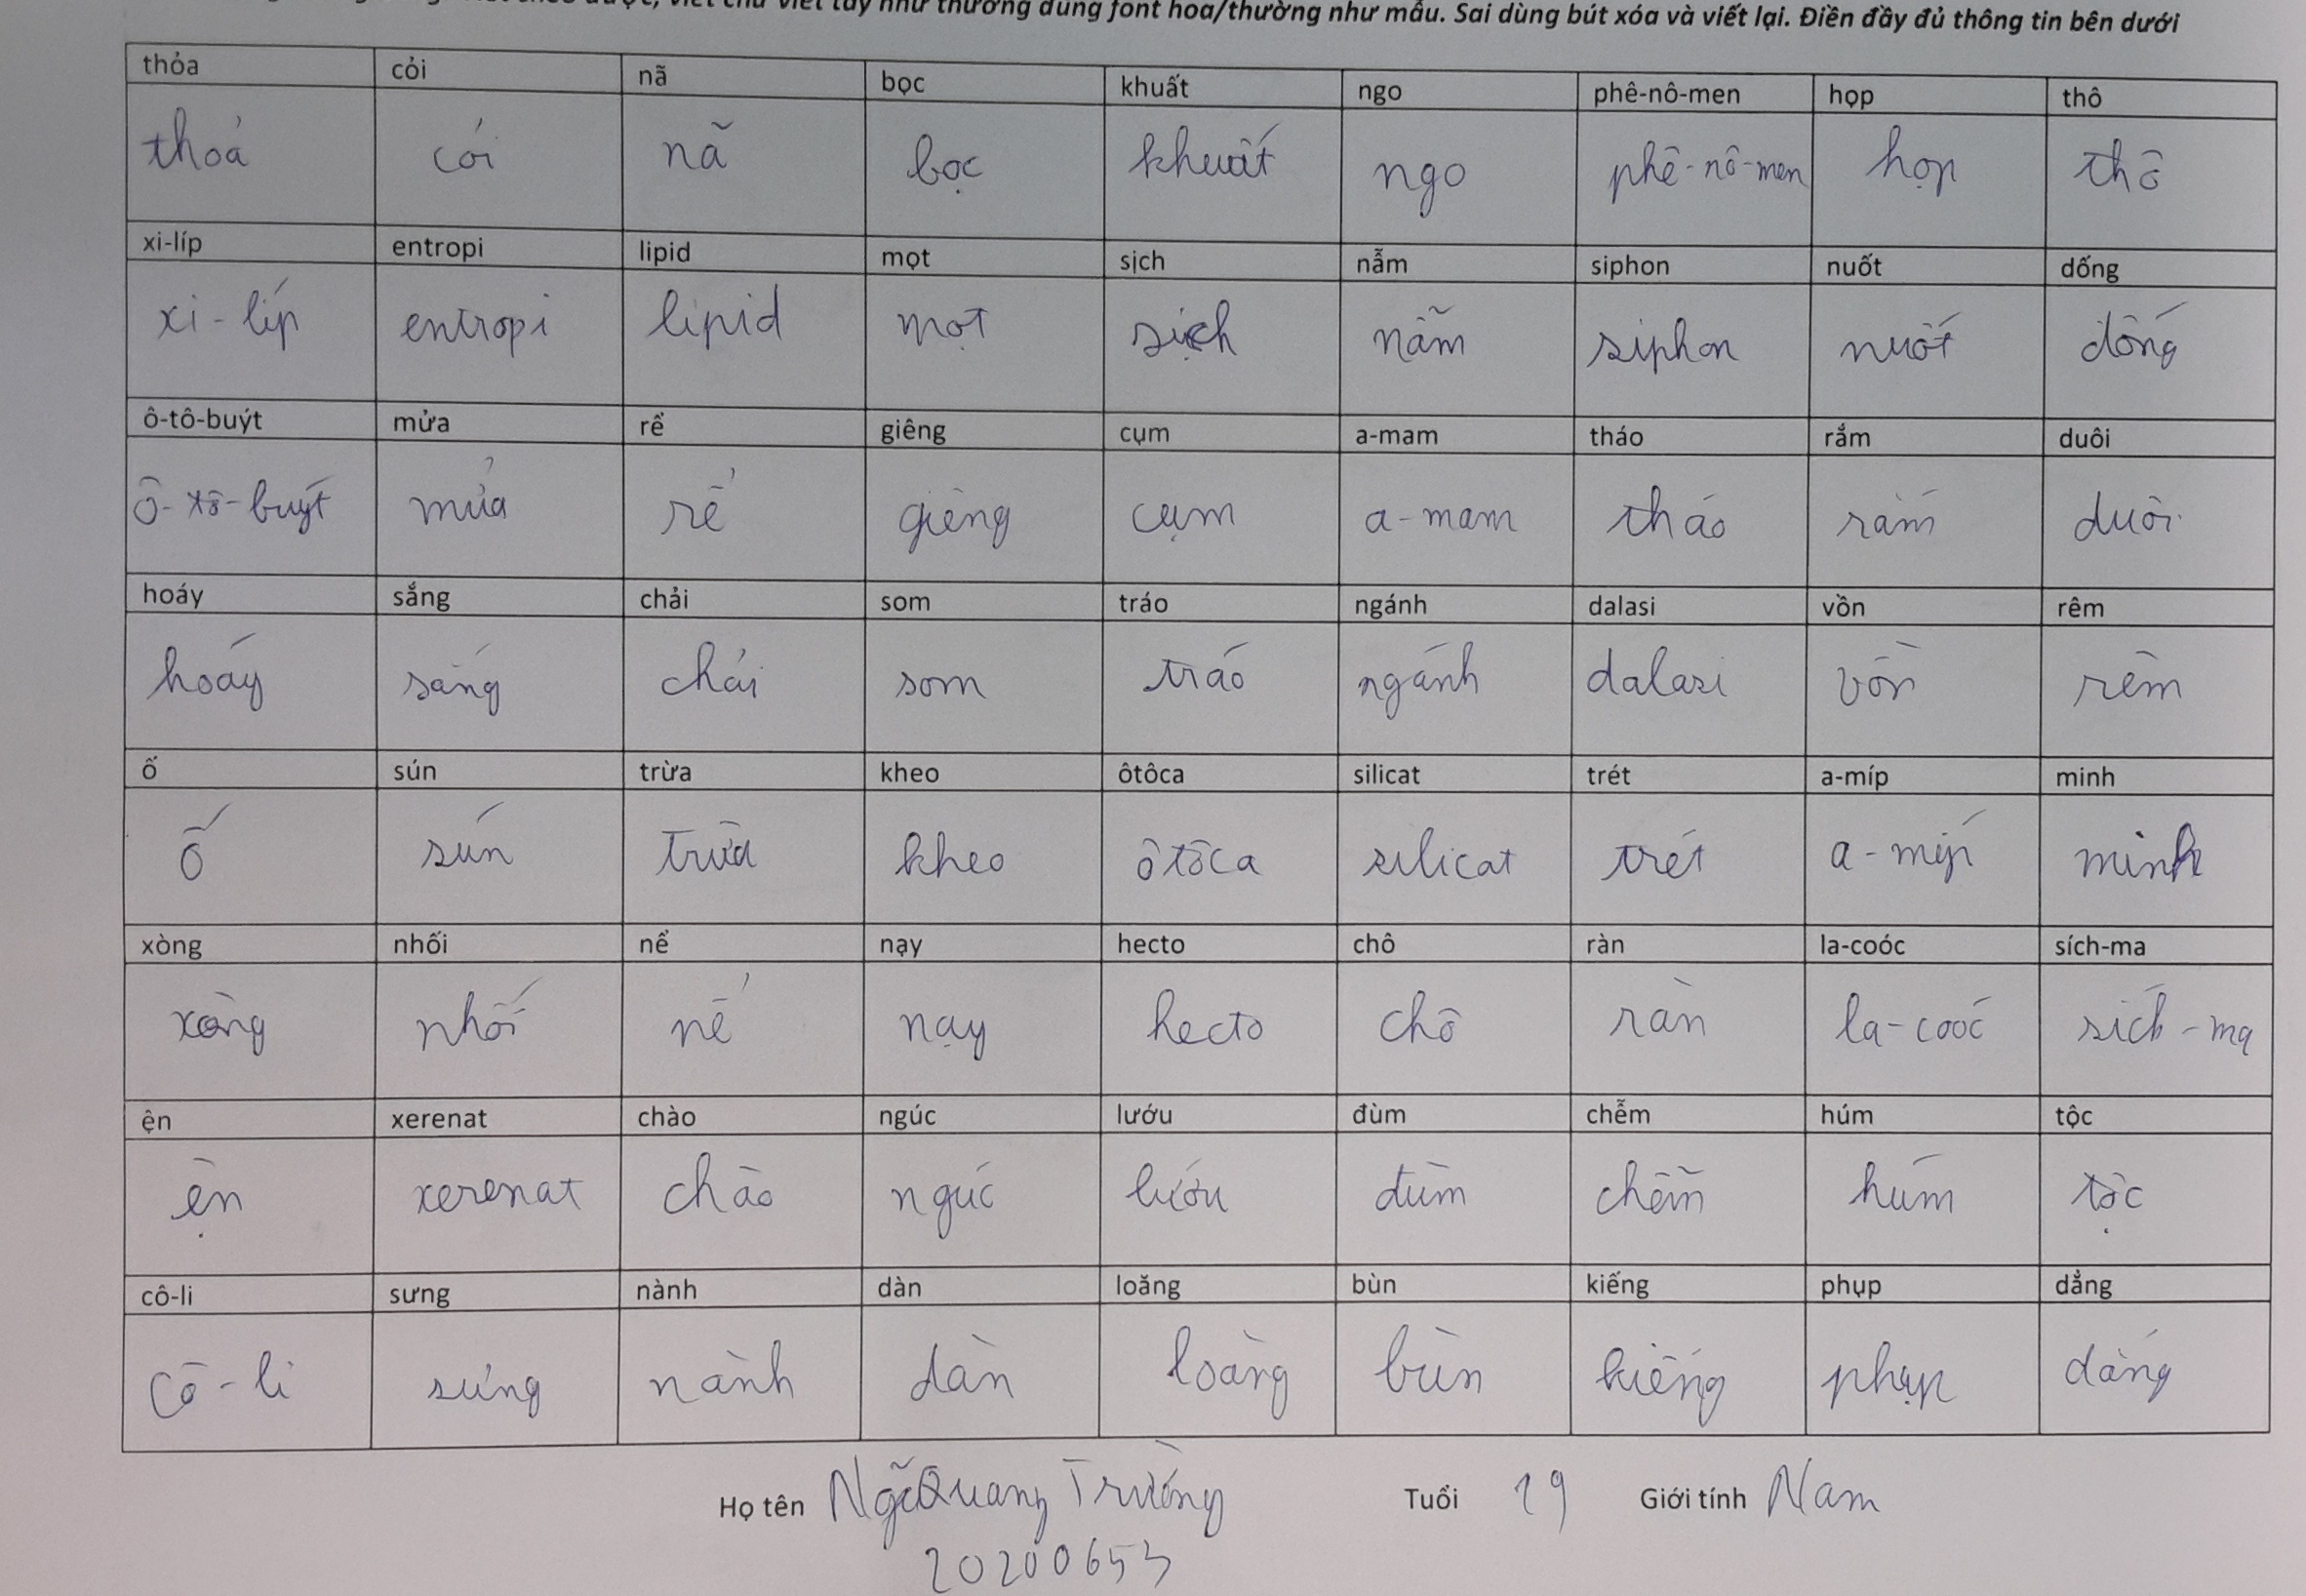 viết chữ viết tay như thường dùng font hoa/thường như mẫu. Sai dùng bút xóa và viết lại. Điền đầy đủ thông tin bên dưới
thỏa cỏi nã bọc khuất ngo phê-nô-men họp thô
thoả cỏi nã bọc khuất ngo phê-nô-men họp thô
xi-líp entropi lipid mọt sịch nẫm siphon nuốt dống
xi-líp entropi lipid mọt sịch nẫm siphon nuốt dống
ô-tô-buýt mửa rể giêng cụm a-mam tháo rắm duôi
ô-tô-buýt mửa rể giêng cụm a-mam tháo rắm duôi
hoáy sắng chải som tráo ngánh dalasi vồn rêm
hoáy sắng chải som tráo ngánh dalasi vồn rêm
ố sún trừa kheo ôtôca silicat trét a-míp minh
ố sún trừa kheo ôtôca silicat trét a-míp minh
xòng nhối nể nạy hecto chô ràn la-coóc sích-ma
xòng nhối nể nạy hecto chô ràn la-coóc sích-ma
ện xerenat chào ngúc lướu đùm chễm húm tộc
ện xerenat chào ngúc lướu đùm chễm húm tộc
cô-li sưng nành dàn loăng bùn kiếng phụp dẳng
cô-li sưng nành dàn loăng bùn kiếng phụp dẳng
Họ tên Quang Trường Tuổi 19 Giới tính Nam
20200653